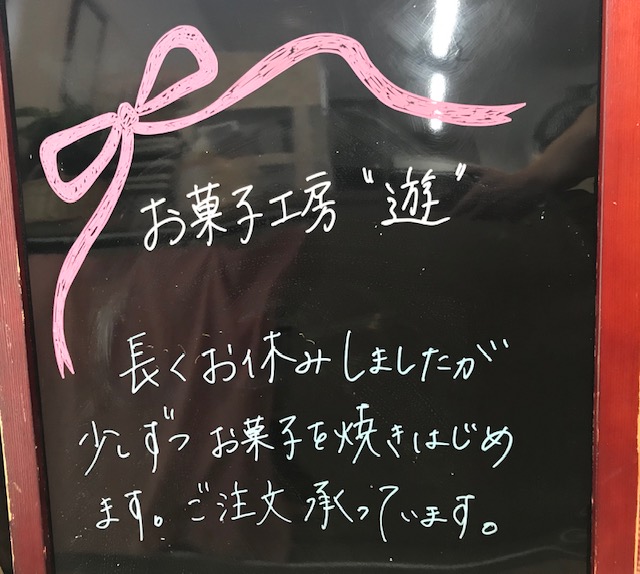 お菓子工房〝遊〟
長くお休みしましたが
少しずつ お菓子を焼きはじめ
ます。ご注文 承っています。